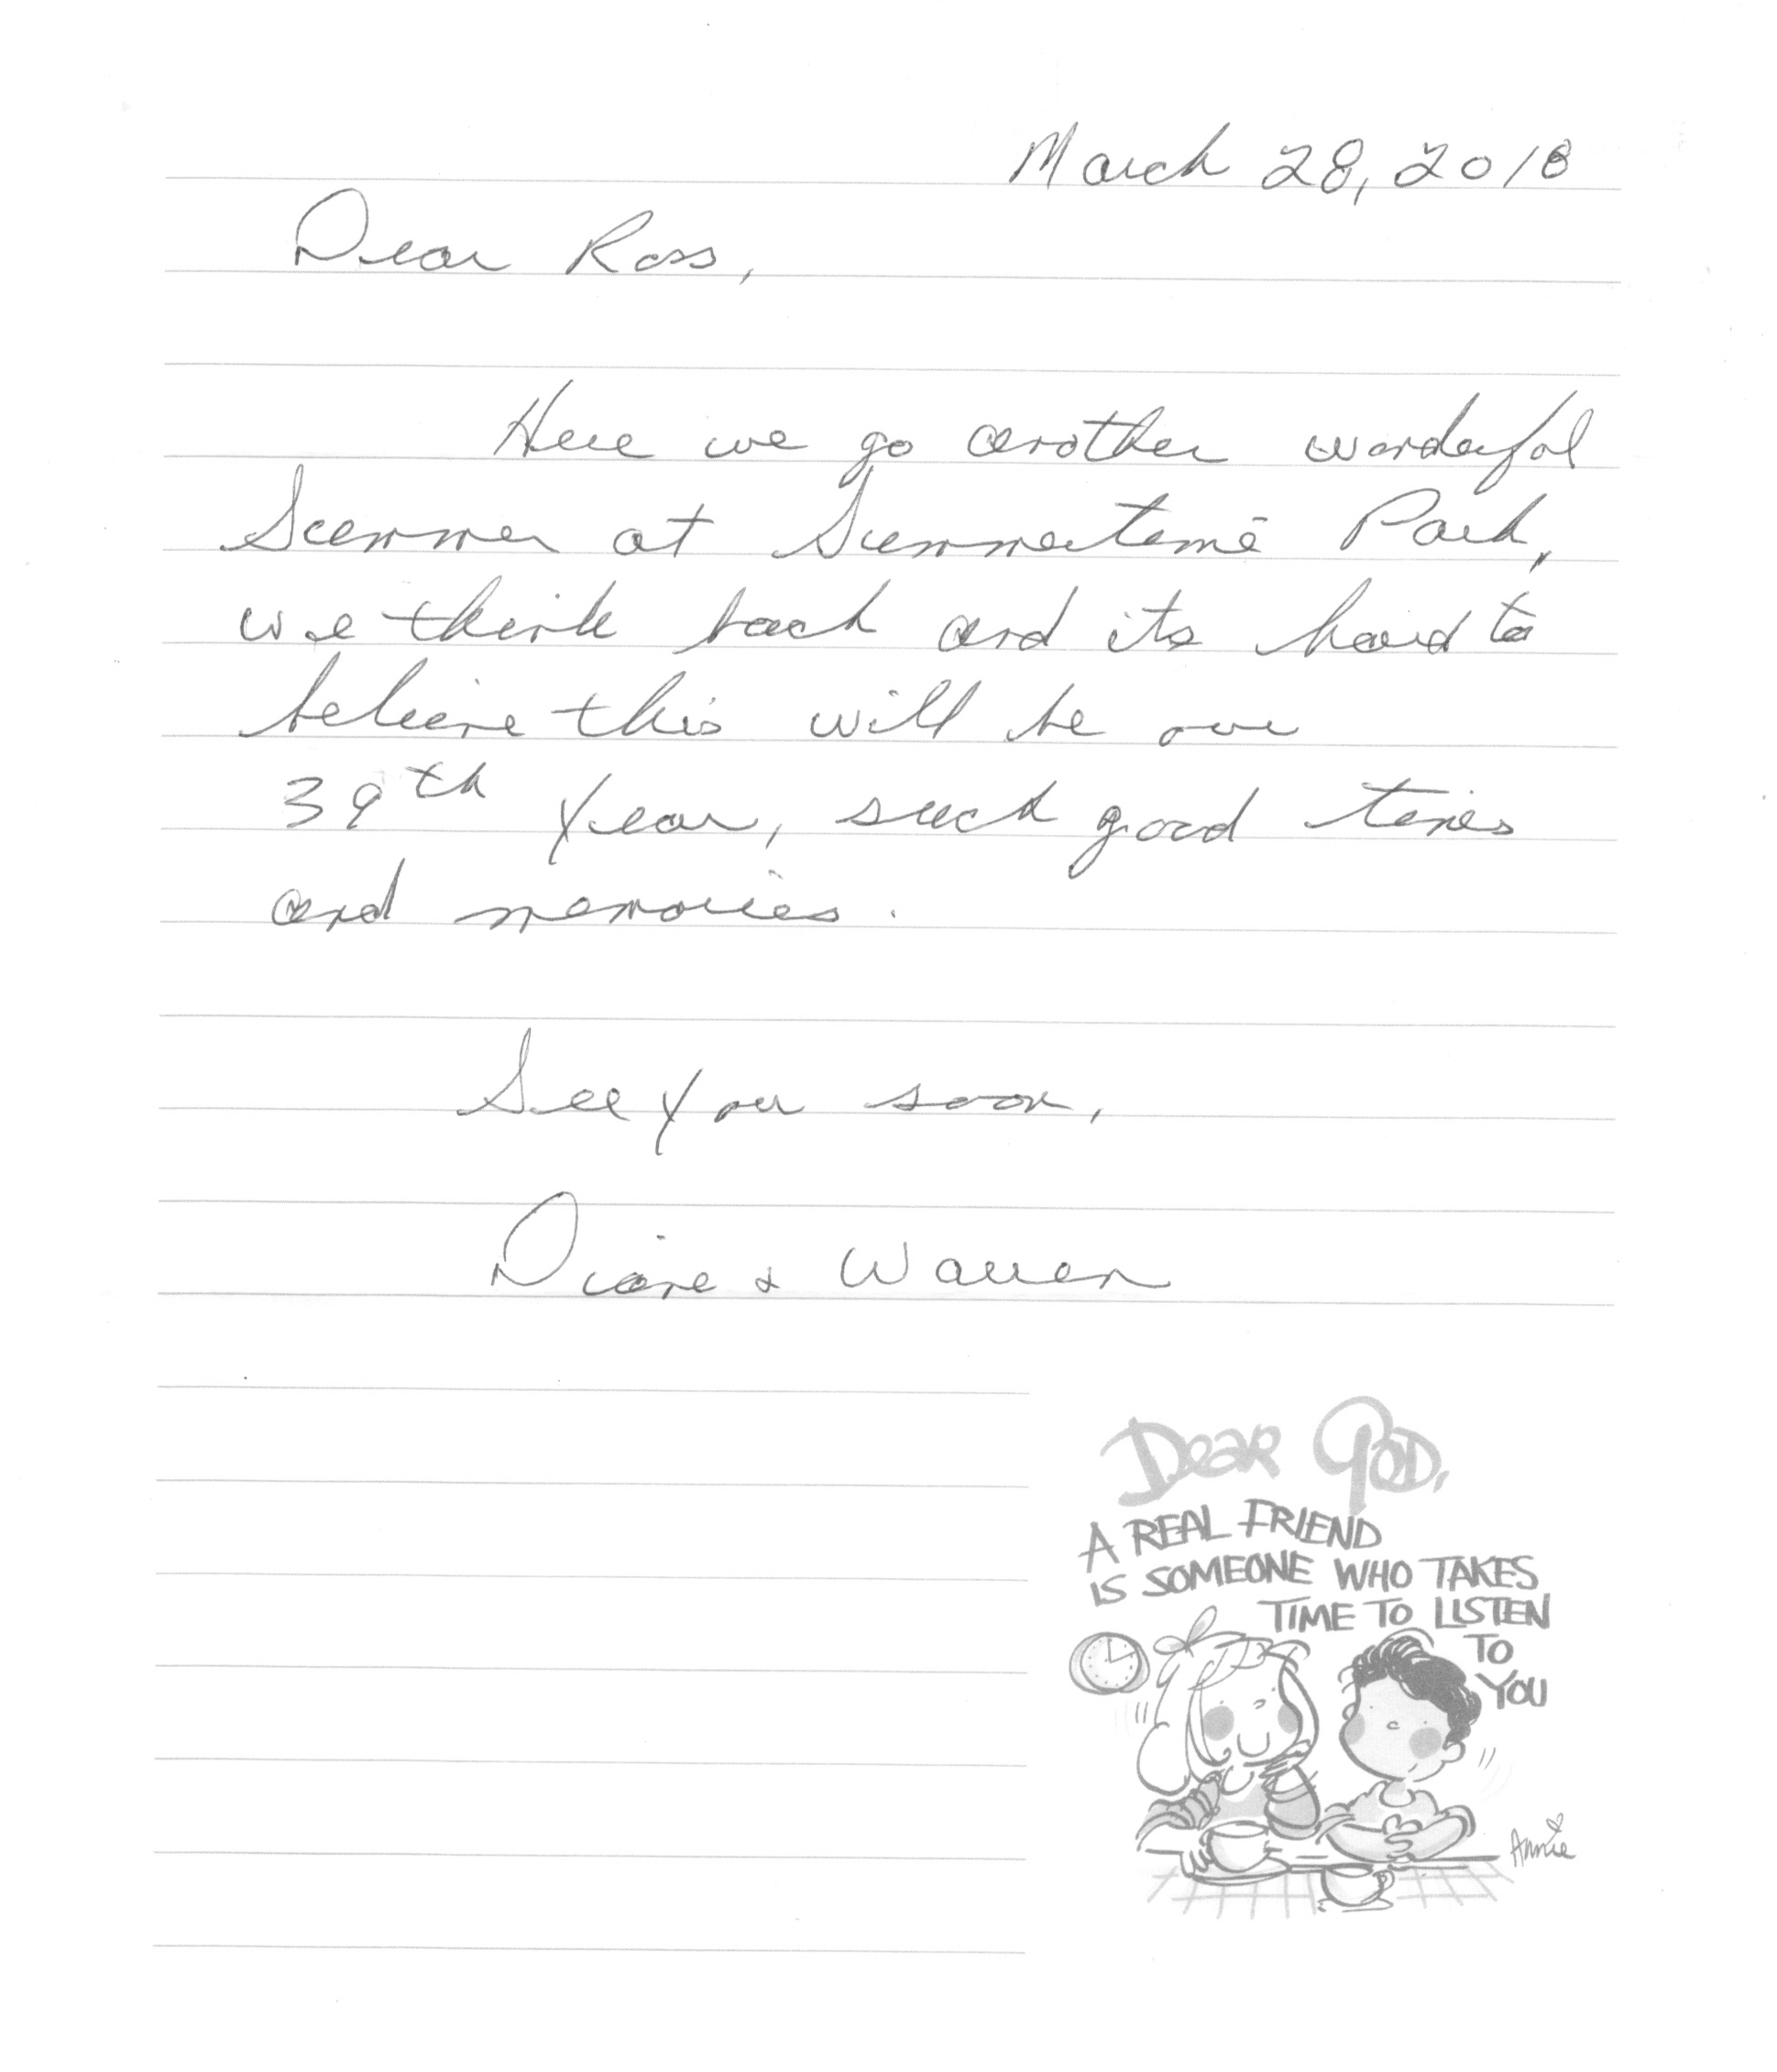 March 28, 2018
Dear Ross,
Here we go another wonderful
Summer at Summertime Park,
we think back and its hard to
believe this will be our
39th Year, such good times
and memories.
See You soon,
Diane & Warren
Dear God,
A REAL FRIEND
IS SOMEONE WHO TAKES
TIME TO LISTEN
TO
YOU
Annie